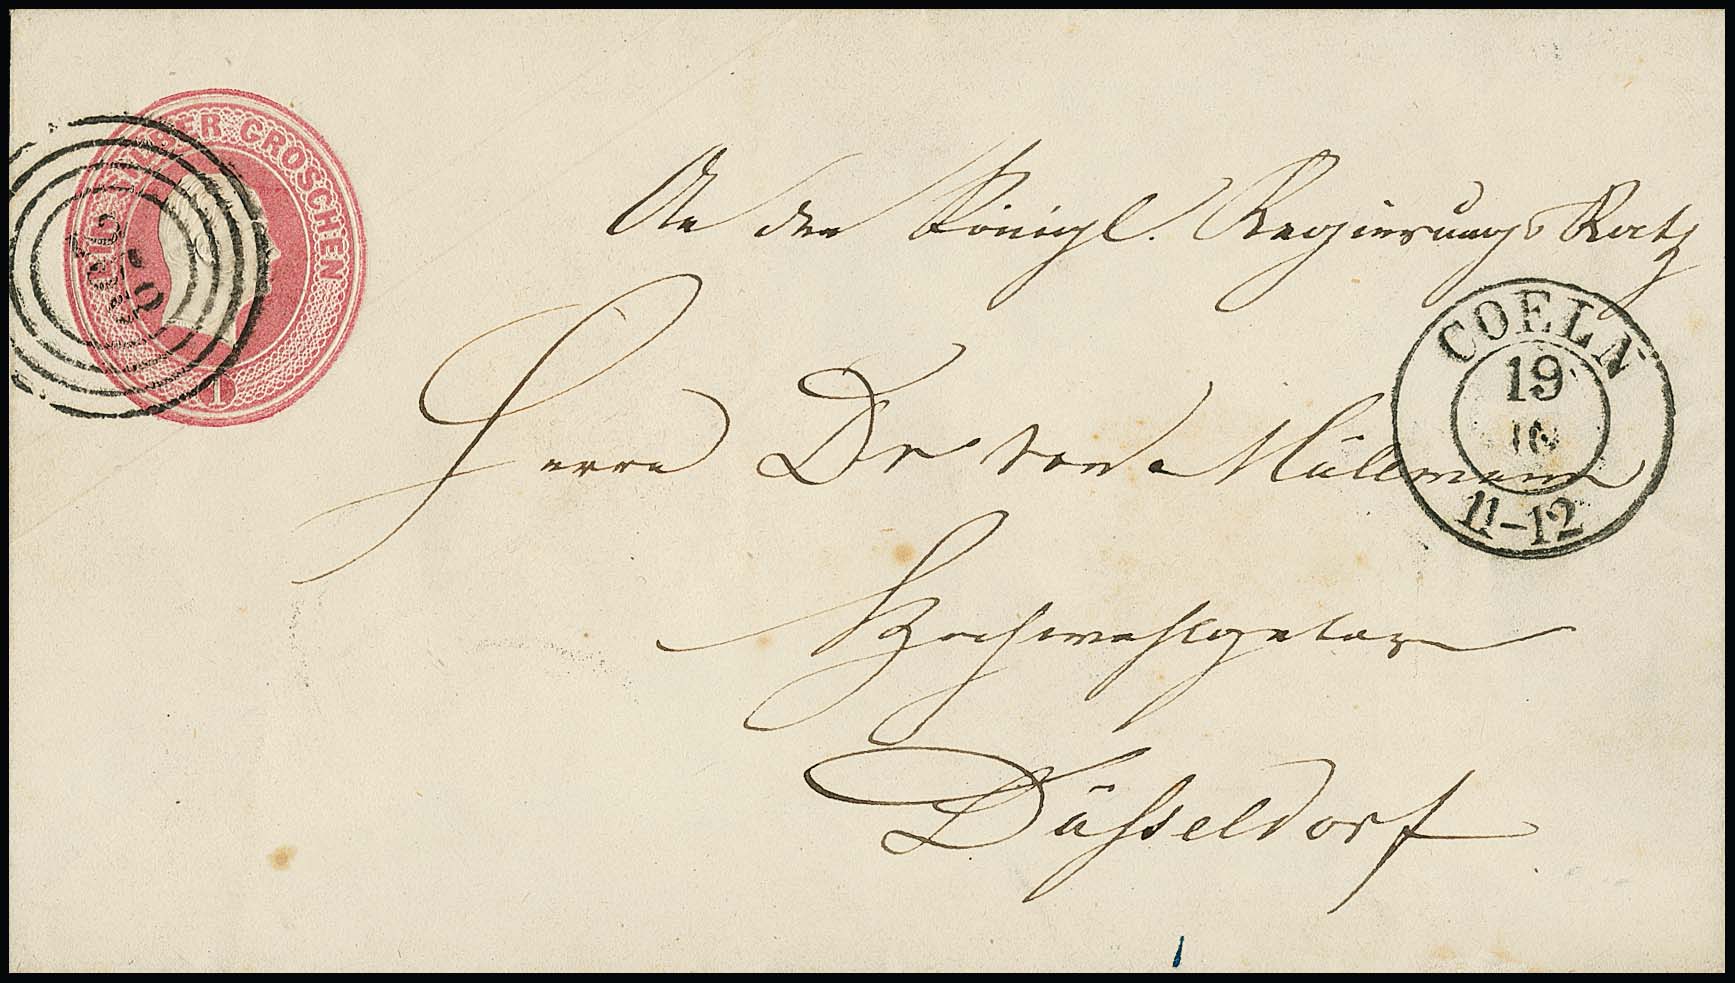 SILBER GROSCHEN
1
An den Königl. Regierungs Rath
COELN
19
11-12
Herrn Dr von Mülmann
Hochwohlgeboren
Düsseldorf